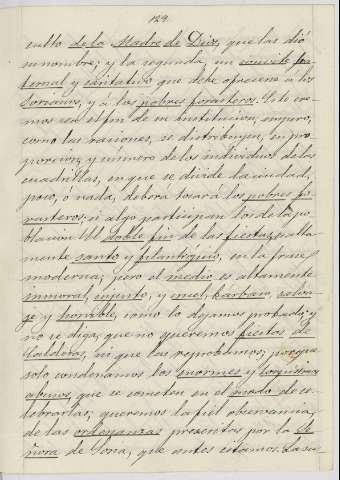 129.
culto de la Madre de Dios, que las dió
su nombre; y la segunda, un convite fra-
ternal y caritativo que debe ofrecerse a los
Sorianos, y a los pobres forasteros. Si lo cre-
mos ser el fin de su institucion, empero,
como las raciones, se distribuyen, en pro-
porcion, y número de los individuos de las
cuadrillas, en que se divide la ciudad,
poco, ó nada, deberá tocará los pobres fo-
rasteros, si algo participan los de la po-
blacion. El doble fin de las fiestas, es alta-
mente santo y filantrópico, en la frase
moderna; pero el medio es altamente
inmoral, injusto, y cruel, bárbaro, salva-
ge y horrible, como lo dejamos probado; y
no se diga, que no queremos fiestas de
Calderas, ni que las reprobamos; porque
solo condenamos los enormes y torquísimos
abusos, que se cometen en el modo de ce-
lebrarlas; queremos la fiel observancia,
de las ordenanzas presentes por la Se-
ñora de Soria, que antes citamos. La su-